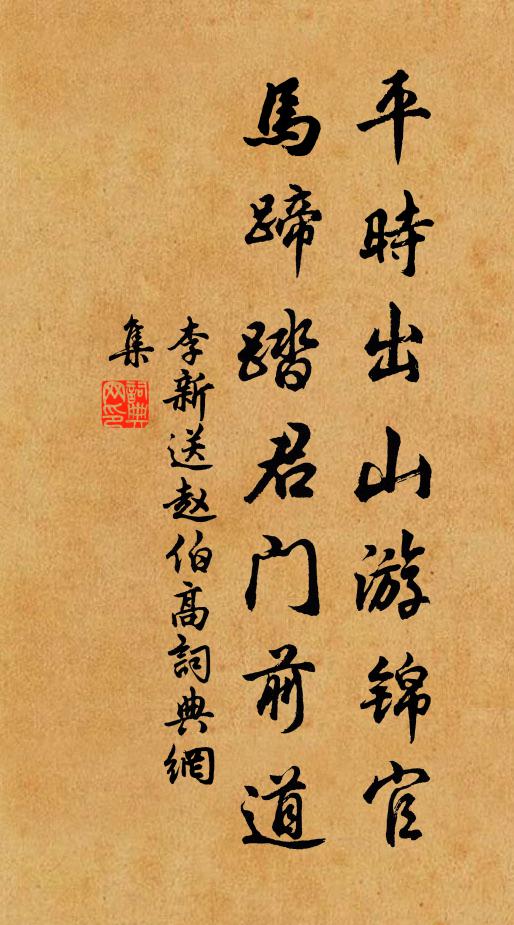 平時出山游錦官
馬蹄踏君门前道
李新送赵伯高詞典網
集
詞典
网印